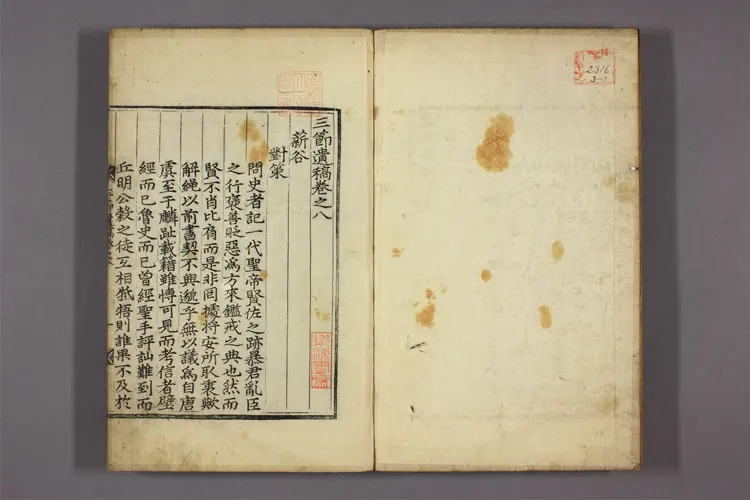 三節遺稿卷之八
薪谷
對策
問史者記一代聖帝賢佐之跡暴君亂臣
之行褒善貶惡爲方來鑑戒之典也然而
賢不肖比肩而是非罔據將安所取衷歟
解繩以前書契不興邈乎無以議爲自唐
虞至于麟趾載籍雖博可見而考信者壁
經而已魯史而已曾經聖手評訕難到而
丘明公穀之徒互相牴牾則誰果不及於
2316
3-3